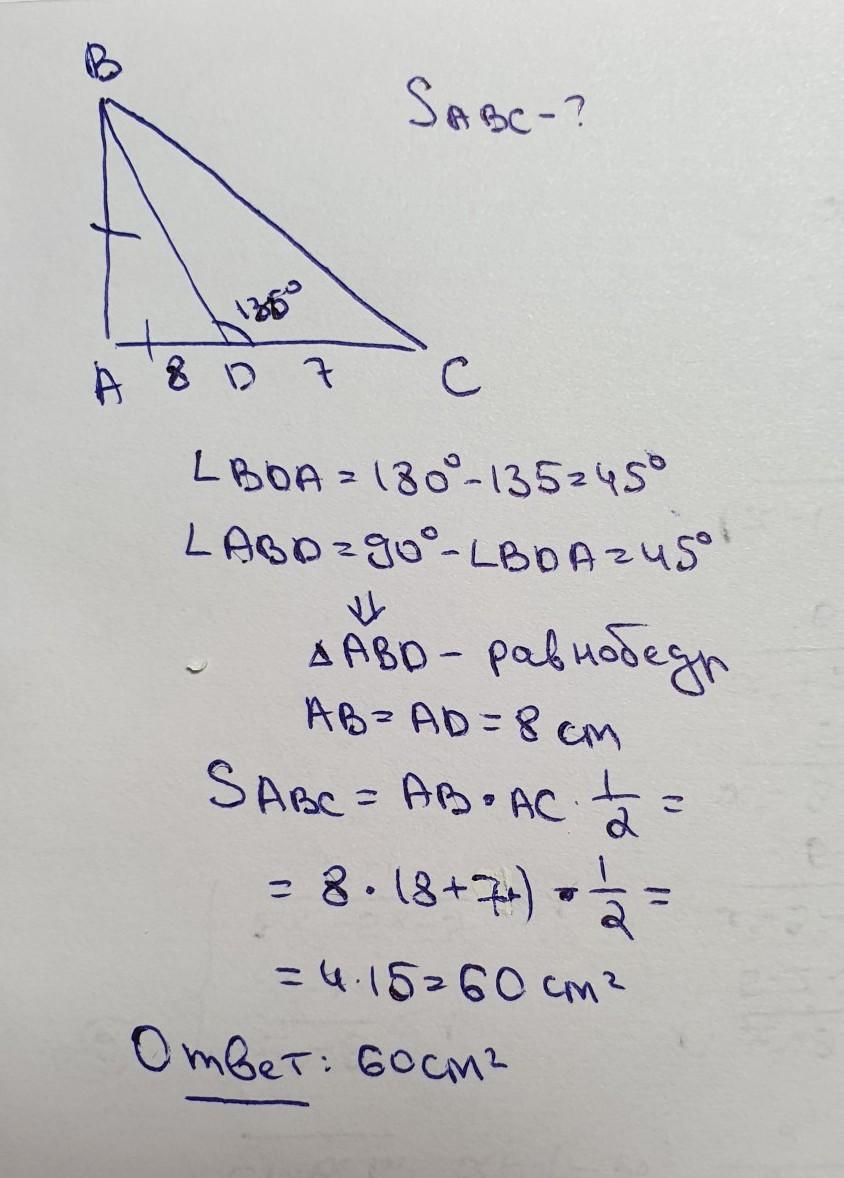 B
SABC - ?
135°
A 8 D 7 C
∠BDA = 180° - 135 = 45°
∠ABD = 90° - ∠BDA = 45°
⇓
△ABD - равнобедр
AB = AD = 8 см
SABC = AB · AC · 1/2 =
= 8 · (8+7) · 1/2 =
= 4 · 15 = 60 см²
Ответ: 60 см²